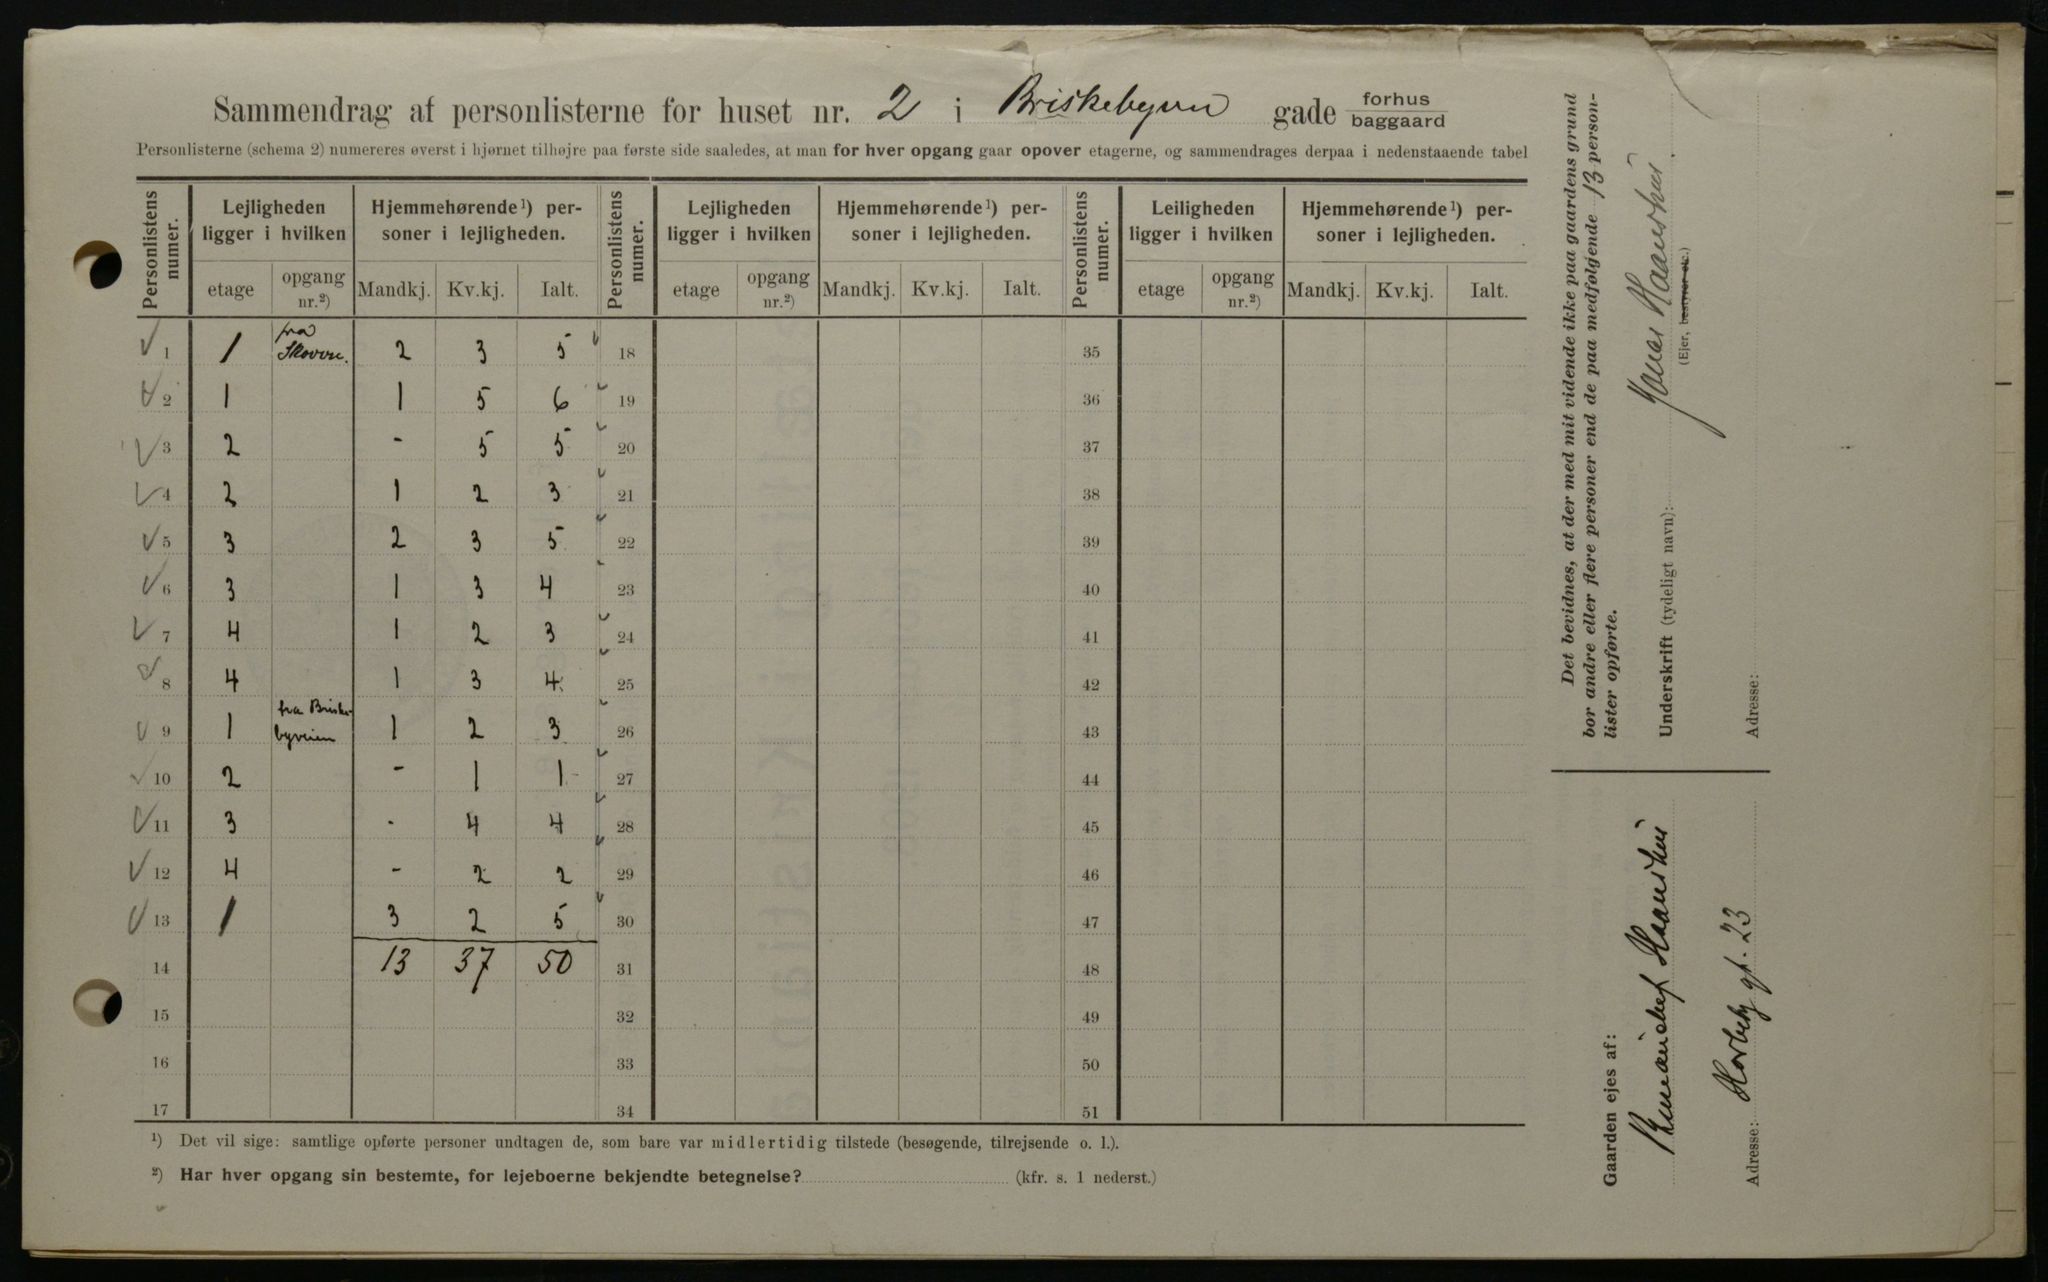 Sammendrag af personlisterne for huset nr. 2 i Briskebyvn gade forhus baggaard
Personlisterne (schema 2) numereres øverst i hjørnet tilhøjre paa første side saaledes, at man for hver opgang gaar opover etagerne, og sammendrages derpaa i nedenstaaende tabel
Personlistens numer. Lejligheden ligger i hvilken Hjemmehørende ¹) personer i lejligheden. Personlistens numer. Lejligheden ligger i hvilken Hjemmehørende ¹) personer i lejligheden. Personlistens numer. Leiligheden ligger i hvilken Hjemmehørende ¹) personer i lejligheden.
etage opgang nr.²) Mandkj. Kv.kj. Ialt. etage opgang nr.²) Mandkj. Kv.kj. Ialt. etage opgang nr.²) Mandkj. Kv.kj. Ialt.
1 1 fra 2 3 5 18 35
2 1 1 5 6 19 36
3 2 - 5 5 20 37
4 2 1 2 3 21 38
5 3 2 3 5 22 39
6 3 1 3 4 23 40
7 4 1 2 3 24 41
8 4 1 3 4 25 42
9 1 fra Briskebyveien 1 2 3 26 43
10 2 - 1 1 27 44
11 3 - 4 4 28 45
12 4 - 2 2 29 46
13 1 3 2 5 30 47
14 13 37 50 31 48
15 32 49
16 33 50
17 34 51
¹) Det vil sige: samtlige opførte personer undtagen de, som bare var midlertidig tilstede (besøgende, tilrejsende o. l.).
²) Har hver opgang sin bestemte, for lejeboerne bekjendte betegnelse? (kfr. s. 1 nederst.)
Det bevidnes, at der med mit vidende ikke paa gaardens grund
bor andre eller flere personer end de paa medfølgende 13 person-
lister opførte.
Underskrift (tydeligt navn):
(Ejer, bestyrer etc.)
Adresse:
Gaarden ejes af:
Adresse: 23